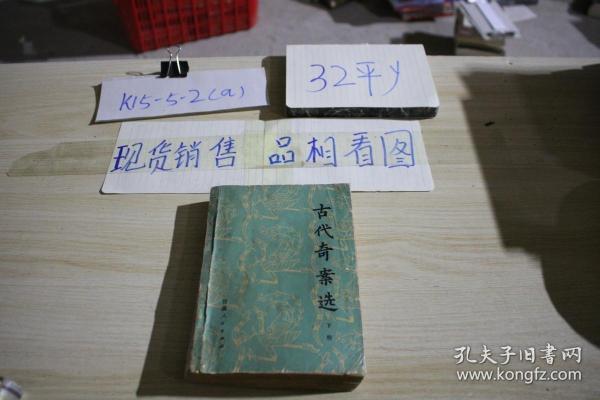 K15-5-2(a)
32平y
现货销售 品相看图
古代奇案选
下册
人民出版社
孔夫子旧书网
www.kongfz.com